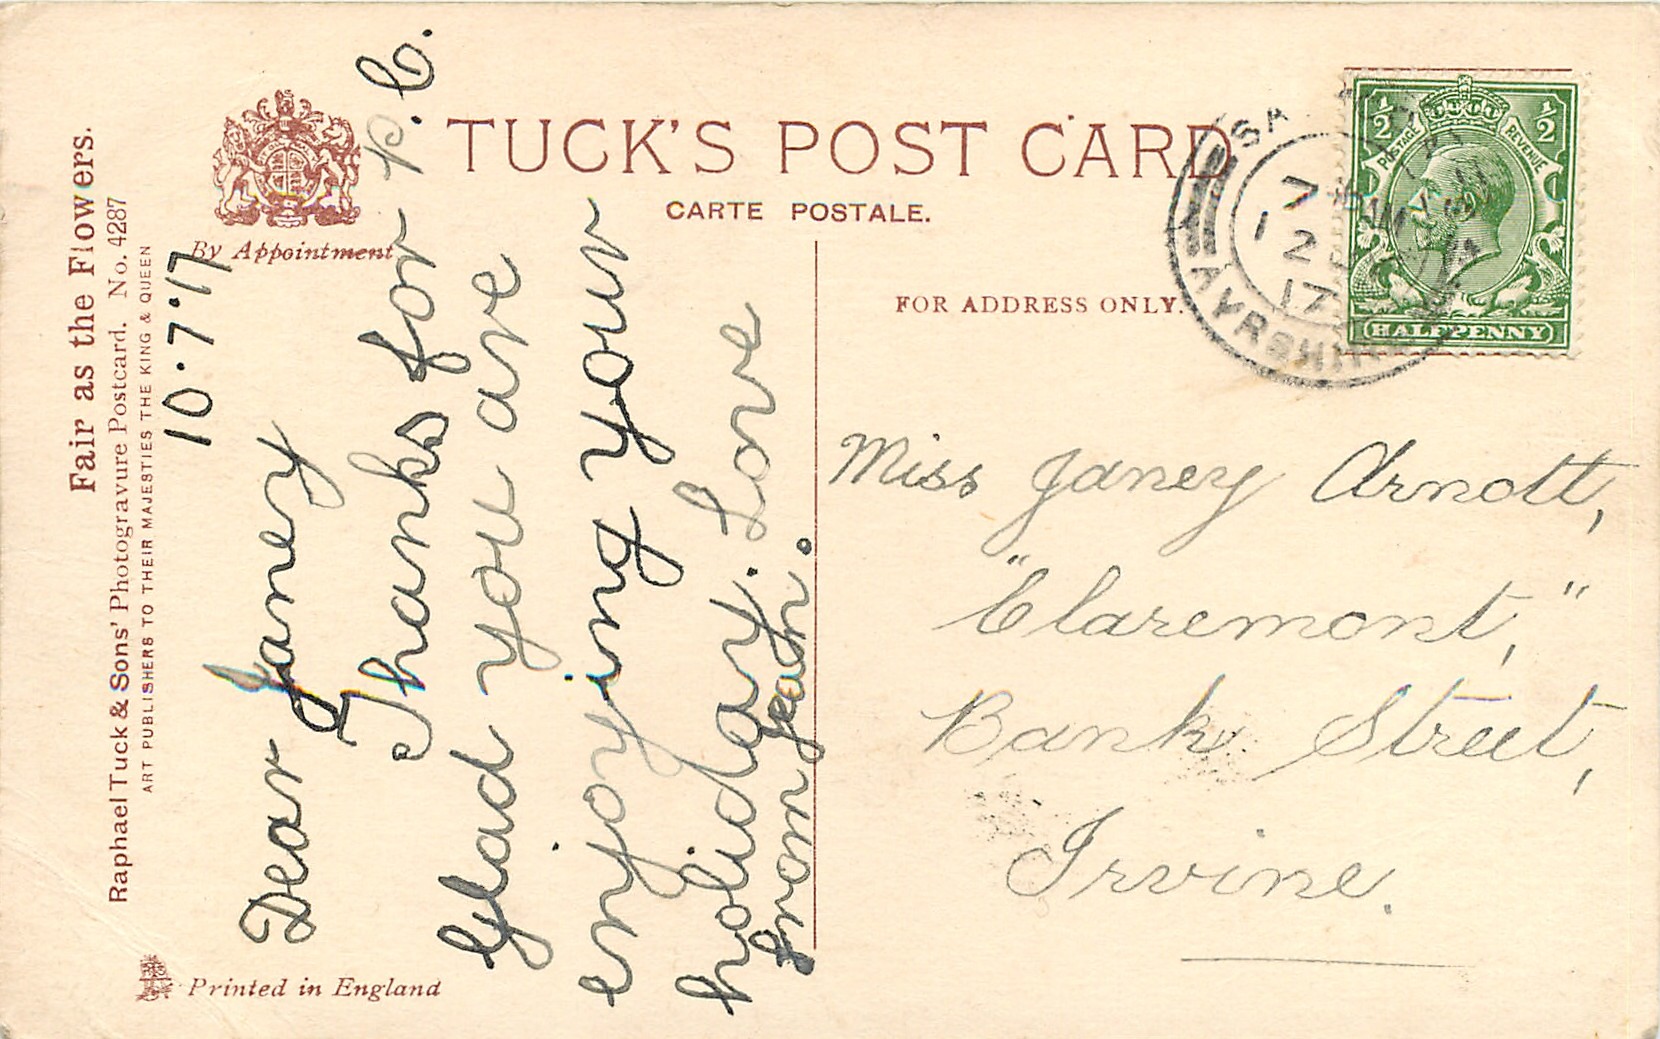 TUCK'S POST CARD
CARTE POSTALE.
By Appointment
FOR ADDRESS ONLY.
Fair as the Flowers.
Raphael Tuck & Sons' Photogravure Postcard. No. 4287
ART PUBLISHERS TO THEIR MAJESTIES THE KING & QUEEN
Printed in England
10.7.17
Dear Janey
Thanks for P.C.
Glad you are
enjoying your
holiday. Love
from Jean.
Miss Janey Arnott,
"Claremont,"
Bank Street,
Irvine.
½ ½
POSTAGE REVENUE
HALFPENNY
AYRSHIRE
12
17